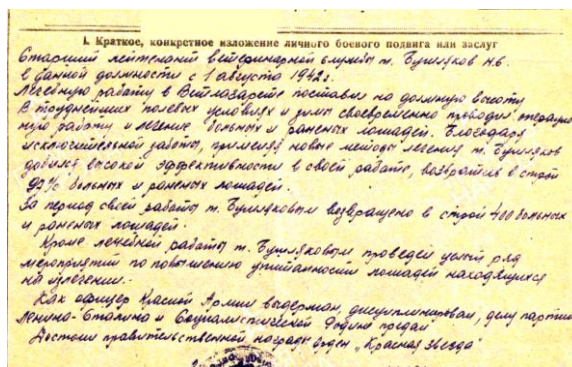 I. Краткое, конкретное изложение личного боевого подвига или заслуг
Старший лейтенант ветеринарной службы т. Бушляков Н.В.
в данной должности с 1 августа 1942 г.
Лечебную работу в Ветлазарете поставил на должную высоту
В труднейших полевых условиях и зимы своевременно проводил операцион
ную работу и лечение больных и раненых лошадей. Благодаря
исключительной заботы, применяя новые методы лечения т. Бушляков
добился высокой эффективности в своей работе, возвратив в строй
90% больных и раненых лошадей.
За период своей работы т. Бушляковым возвращено в строй 400 больных
и раненых лошадей.
Кроме лечебной работы т. Бушляковым проведен целый ряд
мероприятий по повышению упитанности лошадей находящихся
на излечении.
Как офицер Красной Армии выдержан, дисциплинирован, делу партии
Ленина-Сталина и Социалистической Родине предан
Достоин правительственной награды орден „Красная звезда"